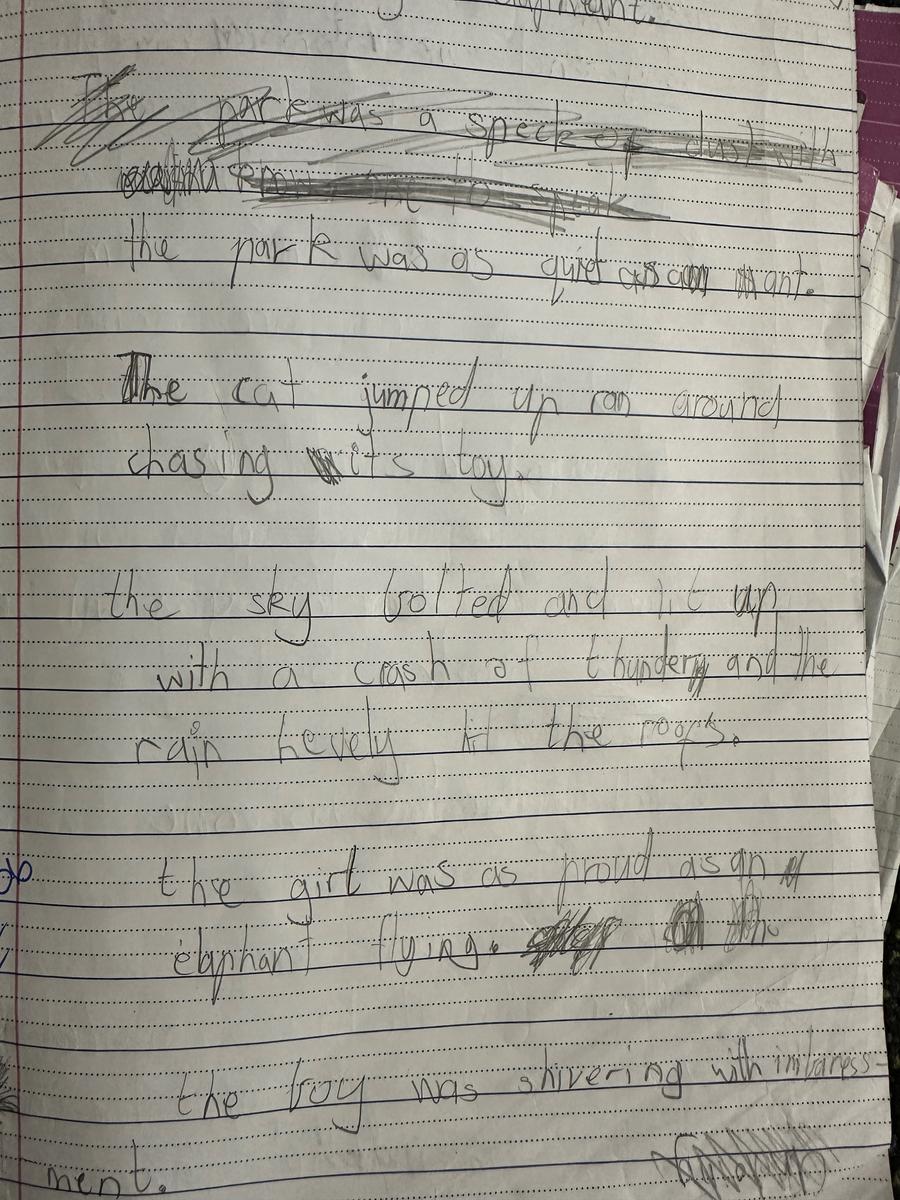 The park was a speck of dust with
to speak
the park was as quiet as an ant.
The cat jumped up ran around
chasing its toy.
the sky bolted and lit up
with a crash of thunder and the
rain hevely hit the roofs.
the girl was as proud as an
elaphant flying.
the boy was shivering with imbaress-
ment.